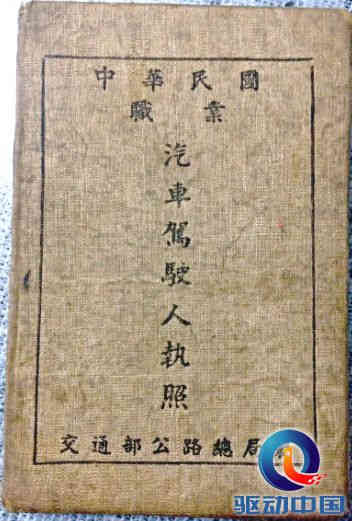 中華民國
職業
汽車駕駛人執照
交通部公路總局
驱动中国